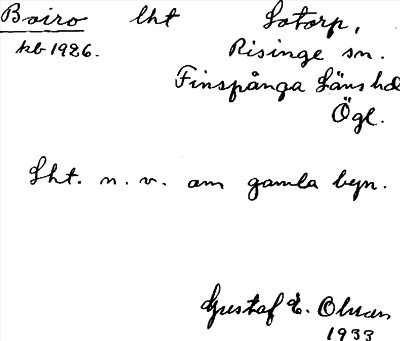 Boiro lht Lotorp,
kb 1926. Risinge sn.
Finspånga Läns hd
Ögl.
Lht. n. v. om gamla byn.
Gustaf E. Olsson
1933